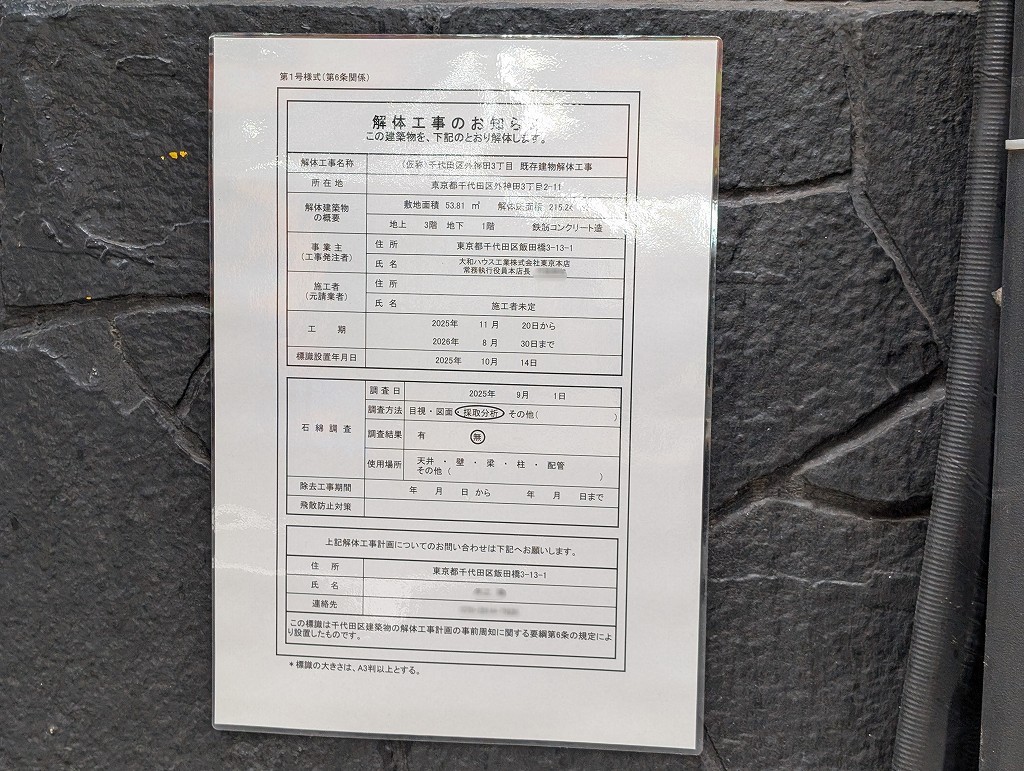 第1号様式(第6条関係)
解体工事のお知らせ
この建築物を、下記のとおり解体します。
解体工事名称 (仮称)千代田区外神田3丁目 既存建物解体工事
所在地 東京都千代田区外神田3丁目2-11
解体建築物の概要 敷地面積 53.81 ㎡ 解体延面積
地上 3階 地下 1階 鉄筋コンクリート造
事業主(工事発注者) 住所 東京都千代田区飯田橋3-13-1
氏名 大和ハウス工業株式会社東京本店
常務執行役員本店長
施工者(元請業者) 住所
氏名 施工者未定
工期 2025年 11月 20日から
2026年 8月 30日まで
標識設置年月日 2025年 10月 14日
石綿調査 調査日 2025年 9月 1日
調査方法 目視・図面・採取分析・その他( )
調査結果 有 無
使用場所 天井 ・ 壁 ・ 梁 ・ 柱 ・ 配管
その他( )
除去工事期間 年 月 日 から 年 月 日まで
飛散防止対策
上記解体工事計画についてのお問い合わせは下記へお願いします。
住所 東京都千代田区飯田橋3-13-1
氏名
連絡先
この標識は千代田区建築物の解体工事計画の事前周知に関する要綱第6条の規定によ
り設置したものです。
*標識の大きさは、A3判以上とする。